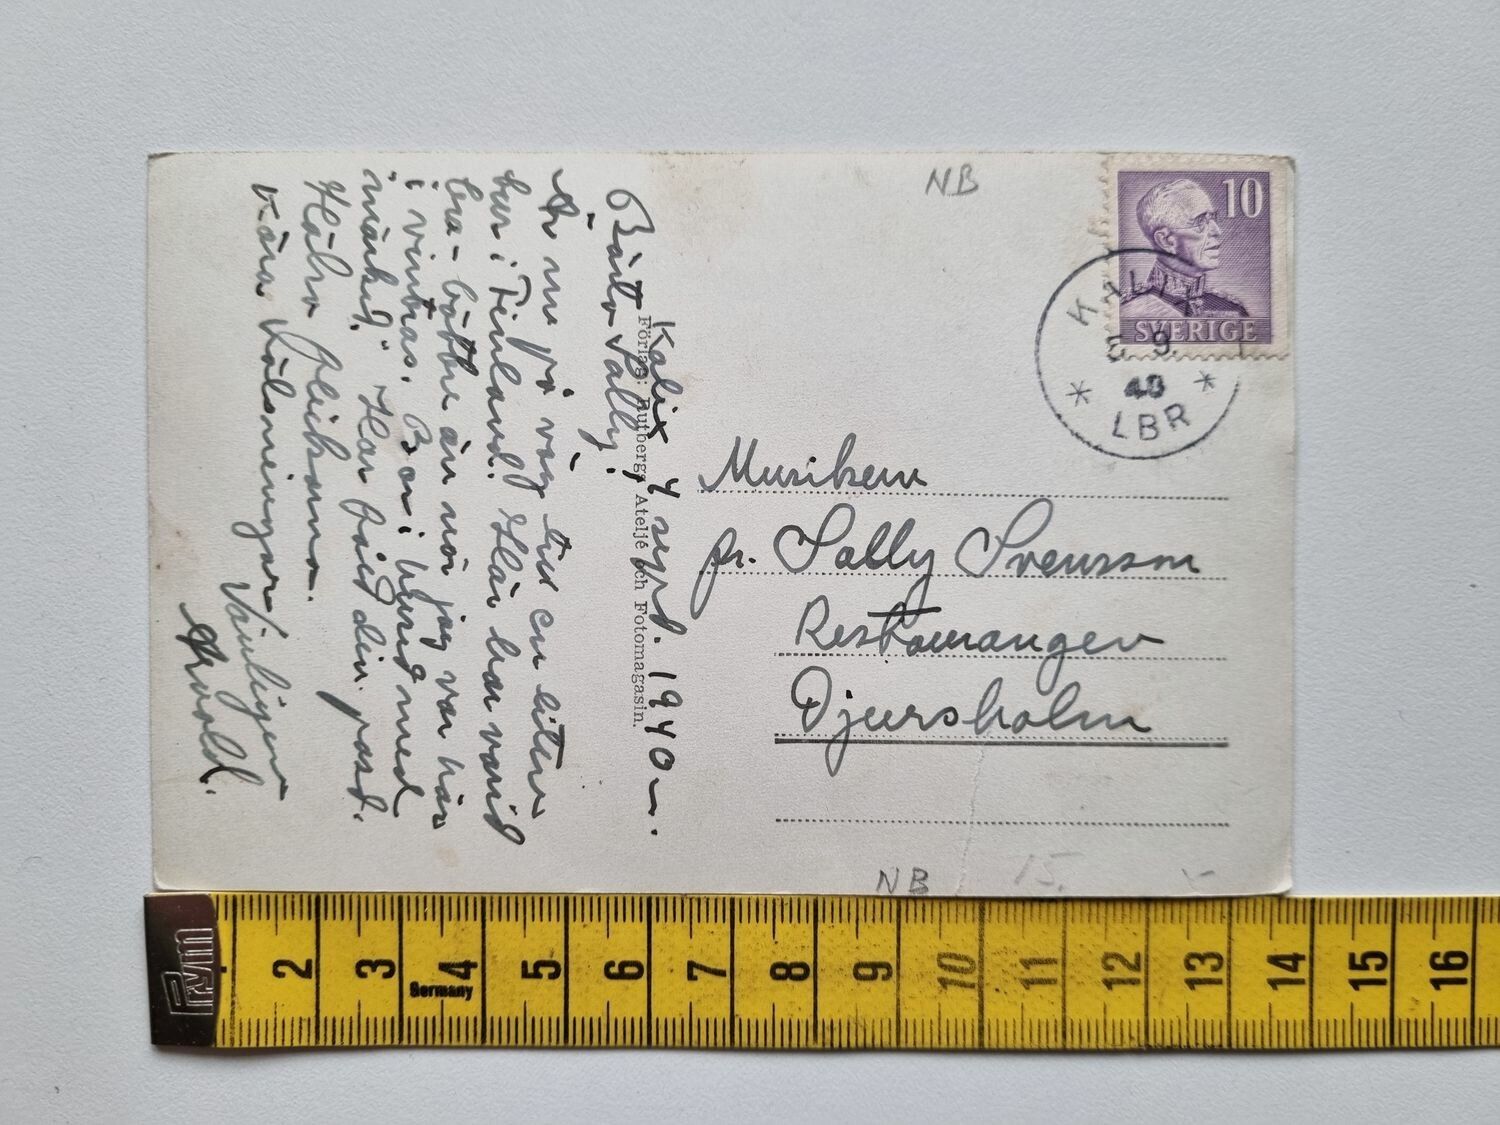 Kalix 4 sept. 1940.
Bästa Sally!
Är nu på väg till en liten
tur i Finland. Här har varit
bra - bättre än när jag var här
i vintras. Bor i hyrd med
"märket." Har fått din post.
Hälsa flickorna.
Kära hälsningar
Vänligen
Arvold.
Förlag: Rutbergs Ateljé och Fotomagasin.
NB
10
SVERIGE
KALIX
5 9.
40
LBR
Musikern
fr. Sally Svensson
Restaurangen
Djursholm
NB
15.
2 3 4 5 6 7 8 9 10 11 12 13 14 15 16
Germany